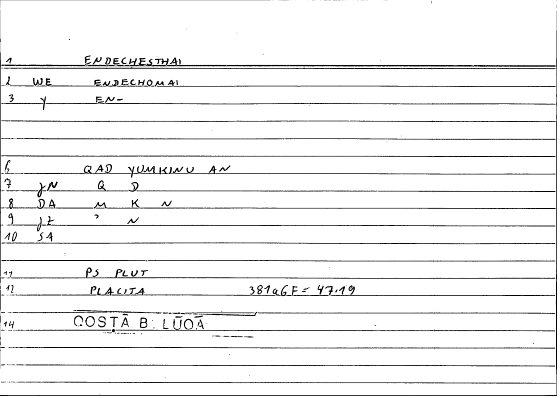 1 ENDECHESTHAI
2 WE ENDECHOMAI
3 y EN-
6 QAD YUMKINU AN
7 JN Q D
8 DA M K N
9 JZ ʾ N
10 SA
11 PS PLUT
12 PLACITA 381a6F = 47.19
14 QOSṬĀ B. LŪQĀ